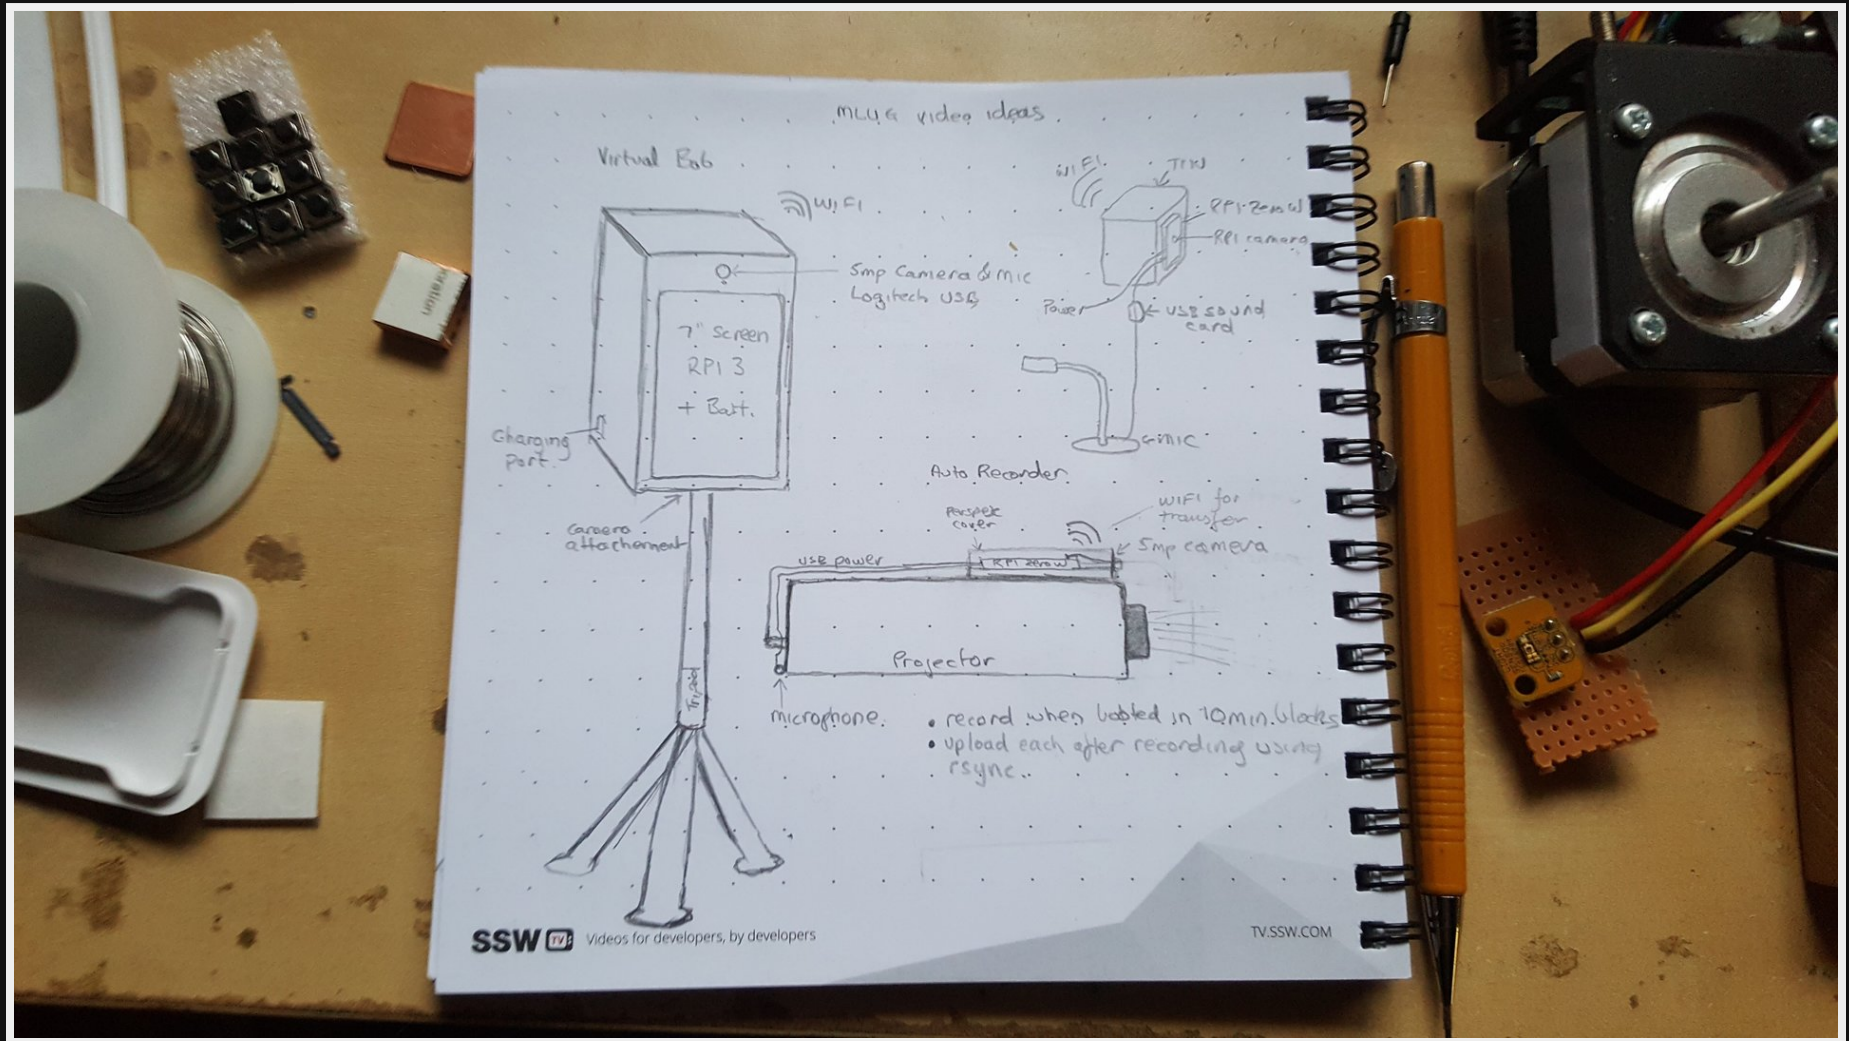 MLUG video ideas
Virtual Bob
WIFI
5mp Camera & mic
Logitech USB
7" Screen
RPI 3
+ Batt.
Charging
port.
attachement
Tripod
WIFI
RPI Zero W
RPI camera
Power
USB sound
card
MIC
Auto Recorder
Perspex
cover
WIFI for
transfer
5mp camera
USB power
RPI zero W
Projector
microphone.
• record when booted in 10min. blocks
• upload each after recording using
rsync..
SSW TV Videos for developers, by developers
TV.SSW.COM